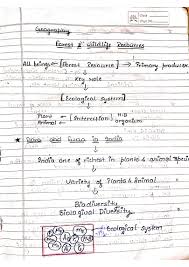 Geography
Forest & Wildlife Resources
All beings → [Forest Resource] → Primary producer
Key Note
[Ecological system]
Plant Animal [Interaction] organism
* Flora and Fauna in India
India one of richest in plants & animal species
Variety of Plants & Animal
Biodiversity
Biological Diversity
Ecological System